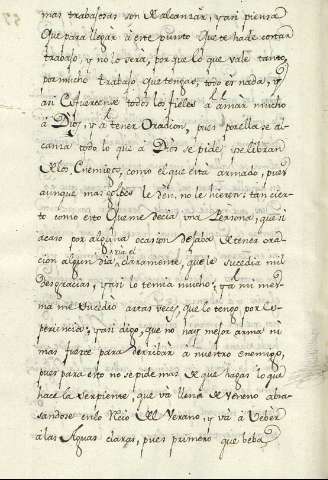 mas trabajosas son de alcanzar, y asi piensa
que para llegar a este punto que te hade costar
trabajo, y no lo sera, porque lo que vale tanto,
por mucho trabajo que tengas, todo es nada, y
asi esfuercense todos los fieles a amar mucho
â Dios, y a tener Oracion, pues por ella se al-
canza todo lo que â Dios se pide, y se libran
de los Enemigos, como el que esta armado, pues
aunque mas golpes le den, no le hieren: tan cier-
to como esto que me decia una Persona, que si
acaso por alguna ocasion dejaba de tener ora-
cion algun dia, claramente, que le sucedia mil
desgracias, y asi lo temia mucho; y a mi mes-
ma me sucedio artas veces, que lo tengo por es-
periencia; y asi digo, que no hay mejor arma ni
mas fuerte para derribar a nuestro enemigo,
pues para esto no se pide mas de que hagas lo que
hace la serpiente, que va llena de veneno abra-
sandose en lo Recio del Verano, y va â beber
â las Aguas claras, pues primero que beba